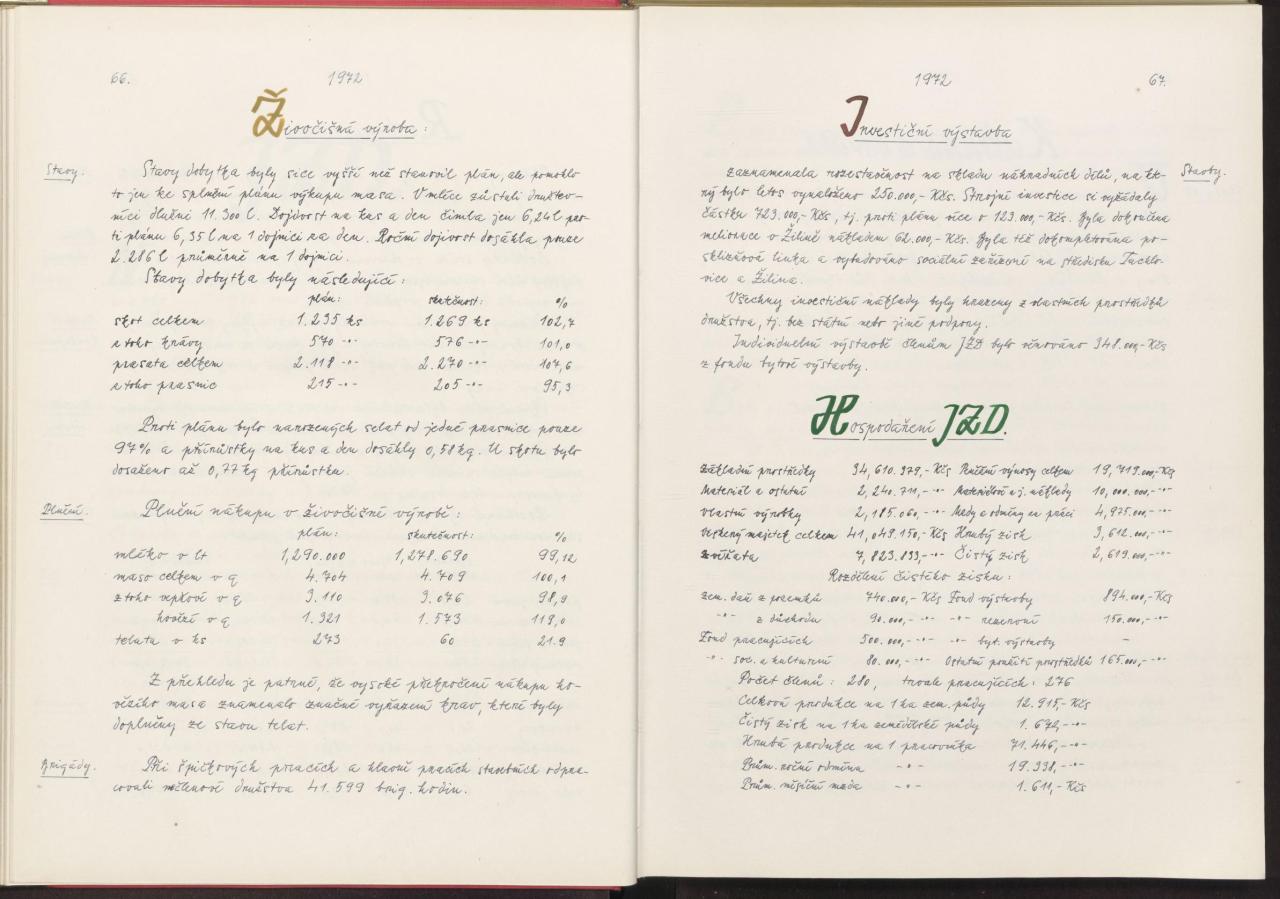 66.
1972
Živočišná výroba:
Stavy:
Stavy dobytka byly sice vyšší než stanovil plán, ale pomohlo
to jen ke splnění plánu výkupu masa. V mléce zůstali družstev-
níci dlužni 11.300 l. Dojivost na kus a den činila jen 6,24 l pro-
ti plánu 6,35 l na 1 dojnici za den. Roční dojivost dosáhla pouze
2.286 l průměrně na 1 dojnici.
Stavy dobytka byly následující:
plán: skutečnost: %
skot celkem 1.235 ks 1.269 ks 102,7
z toho krávy 570 -"- 576 -"- 101,0
prasata celkem 2.118 -"- 2.270 -"- 107,6
z toho prasnic 215 -"- 205 -"- 95,3
Proti plánu bylo narozených selat od jedné prasnice pouze
97% a přírůstky na kus a den dosáhly 0,58 kg. U skotu bylo
dosaženo až 0,77 kg přírůstku.
Plnění.
Plnění nákupu v živočišné výrobě:
plán: skutečnost: %
mléko v lt 1,290.000 1,278.690 99,12
maso celkem v q 4.704 4.709 100,1
z toho vepřové v q 3.110 3.076 98,9
hovězí v q 1.321 1.573 119,0
telata v ks 273 60 21.9
Z přehledu je patrné, že vysoké překročení nákupu ho-
vězího masa znamenalo značné vyřazení krav, které byly
doplněny ze stavu telat.
Brigády.
Při špičkových pracích a hlavně pracích stavebních odpra-
covali členové družstva 41.599 brig. hodin.
1972
67.
Investiční výstavba
Stavby.
zaznamenala rozestavěnost na skladu náhradních dílů, na kte-
rý bylo letos vynaloženo 250.000,- Kčs. Strojní investice si vyžádaly
částku 723.000,- Kčs, tj. proti plánu více o 123.000,- Kčs. Byla dokončena
meliorace v Žilině nákladem 62.000,- Kčs. Byla též dokompletována po-
sklizňová linka a vybudováno sociální zařízení na středisku Tuchlo-
vice a Žilina.
Všechny investiční náklady byly hrazeny z vlastních prostředků
družstva, tj. bez státní nebo jiné podpory.
Individuelní výstavbě členům JZD bylo věnováno 348.000,- Kčs
z fondu bytové výstavby.
Hospodaření JZD.
Základní prostředky 34,610.379,- Kčs Peněžní výnosy celkem 19,719.000,- Kčs
Materiál a ostatní 2,240.711,- -"- Materiálové a j. náklady 10,000.000,- -"-
Vlastní výrobky 2,185.060,- -"- Mzdy a odměny za práci 4,975.000,- -"-
Veškerý majetek celkem 41,049.150,- Kčs Hrubý zisk 3,612.000,- -"-
Zvířata 7,823.833,- -"- Čistý zisk 2,619.000,- -"-
Rozdělení čistého zisku:
Zem. daň z pozemků 740.000,- Kčs Fond výstavby 894.000,- Kčs
-"- z důchodu 90.000,- -"- -"- rezervní 150.000,- -"-
Fond pracujících 500.000,- -"- -"- byt. výstavby -
-"- soc. a kulturní 80.000,- -"- Ostatní použití prostředků 165.000,- -"-
Počet členů: 280, trvale pracujících: 276
Celková produkce na 1 ha zem. půdy 12.915,- Kčs
Čistý zisk na 1 ha zemědělské půdy 1.672,- -"-
Hrubá produkce na 1 pracovníka 71.446,- -"-
Prům. roční odměna -"- 19.338,- -"-
Prům. měsíční mzda -"- 1.611,- Kčs